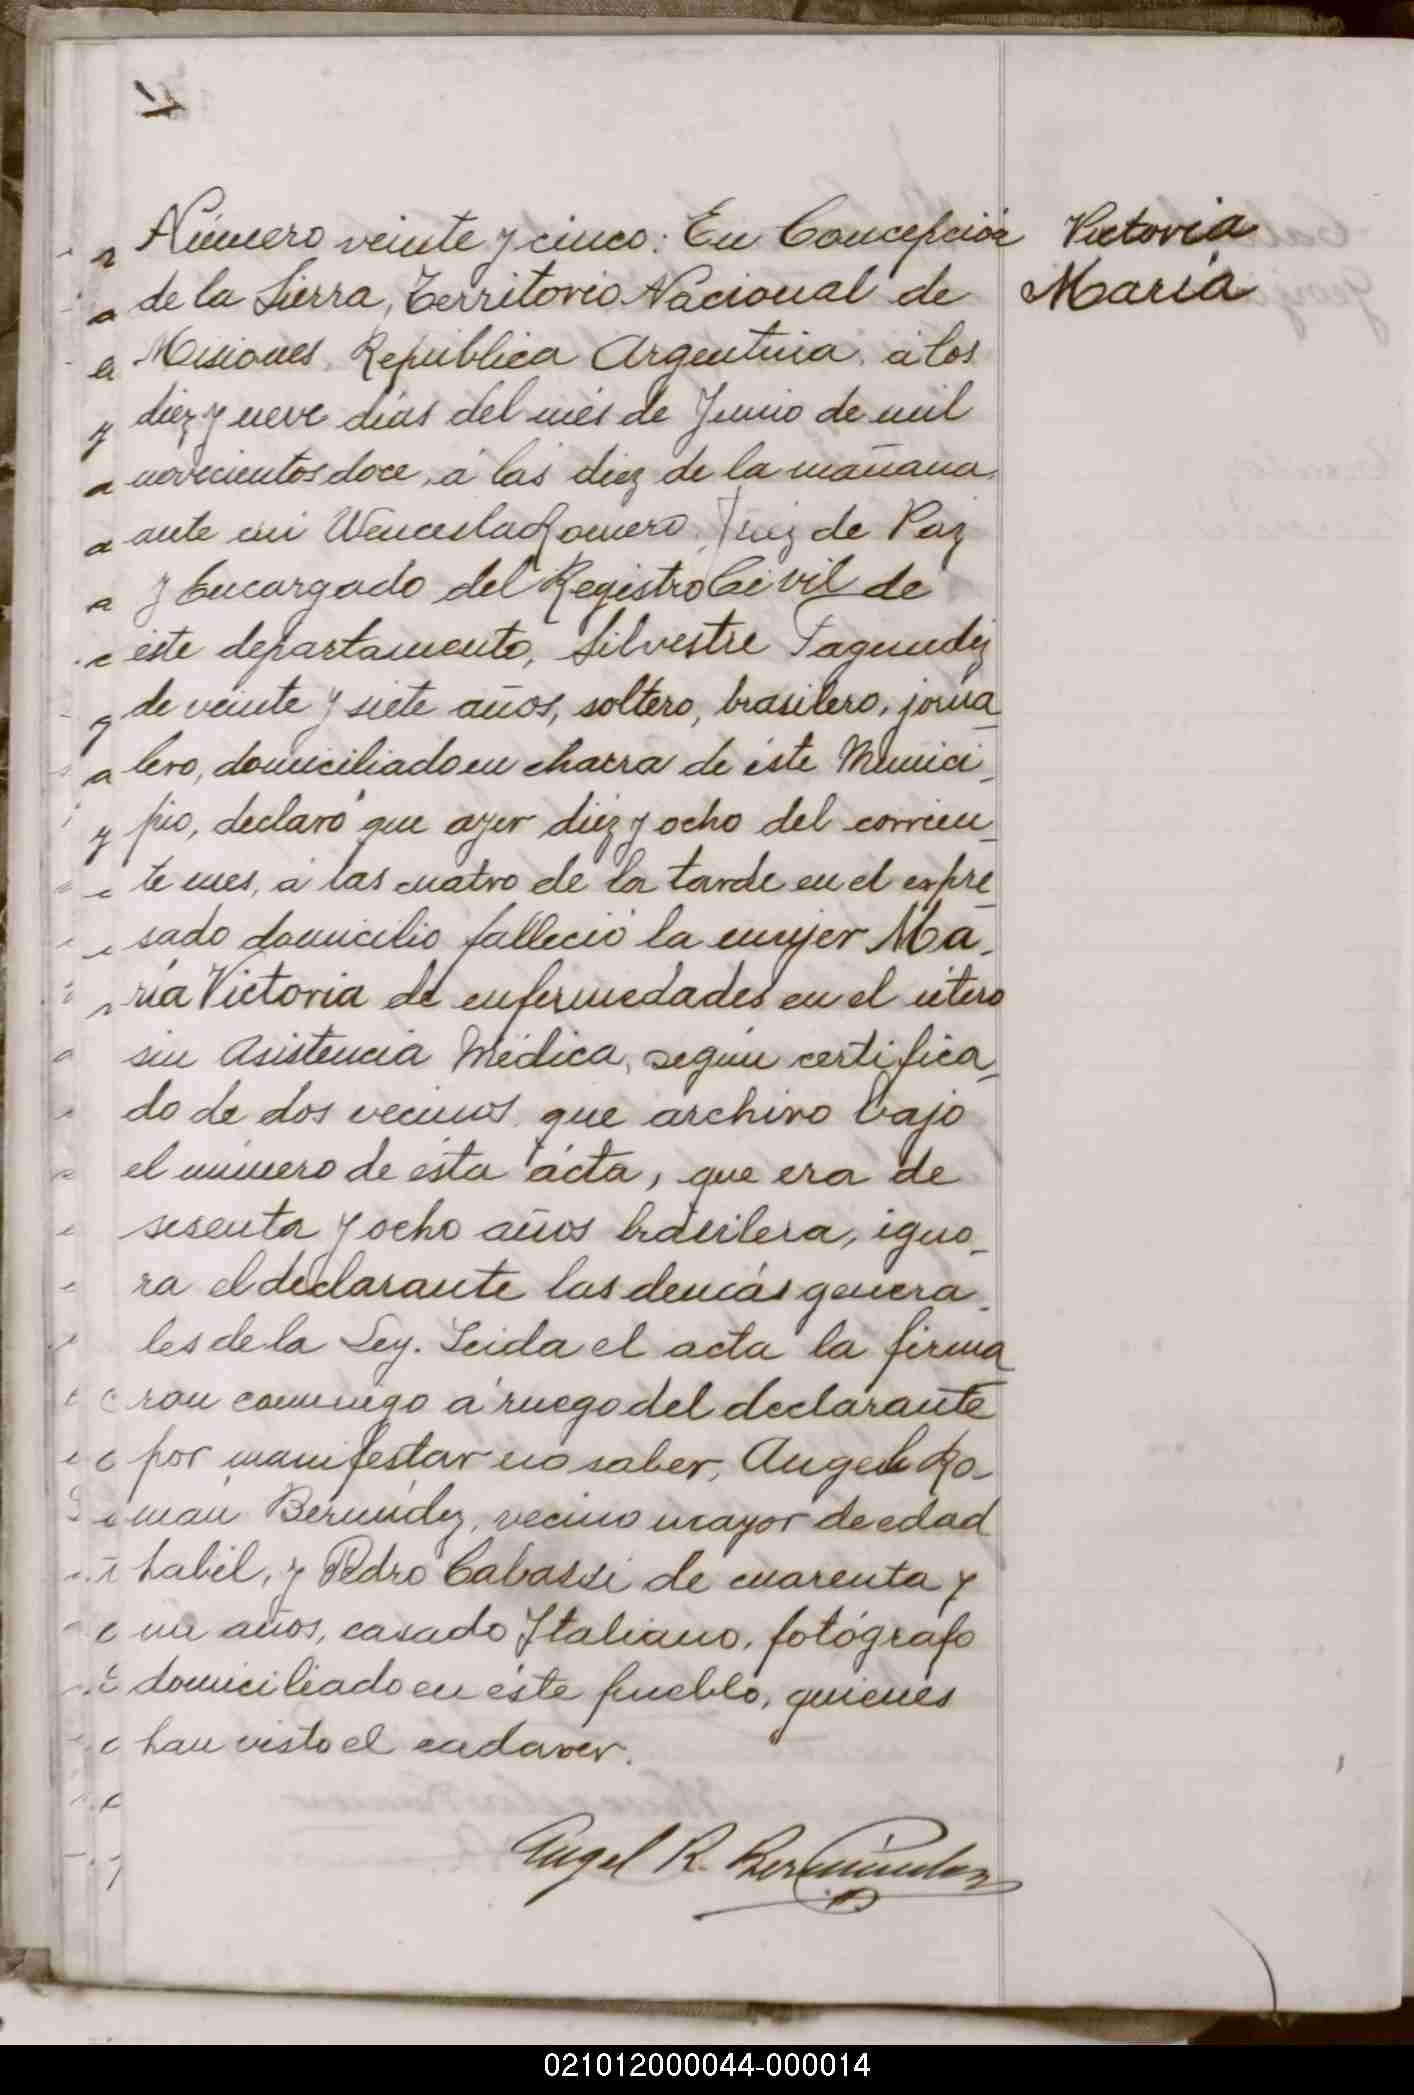 Número veinte y cinco: En Concepción
de la Sierra, Territorio Nacional de
Misiones, República Argentina, á los
diez y neve días del més de Junio de mil
novecientos doce, á las diez de la mañana,
ante mi Wencesla Romero, Juez de Paz
y Encargado del Registro Civil de
éste departamento, Silvestre Fagundez
de veinte y siete años, soltero, brasilero, jorna_
lero, domiciliado en chacra de éste Munici_
pio, declaró que ayer diez y ocho del corrien_
te mes, á las cuatro de la tarde en el expre_
sado domicilio falleció la mujer Ma_
ría Victoria de enfermedades en el útero
sin Asistencia Médica, según certifica_
do de dos vecinos que archivo bajo
el número de ésta ácta, que era de
sesenta y ocho años brasilera, igno_
ra el declarante las demás genera_
les de la Ley. Leida el acta la firma
ron conmigo á ruego del declarante
por manifestar no saber, Angel Ro_
mán Bermúdez, vecino mayor de edad
habil, y Pedro Cabassi de cuarenta y
un años, casado Italiano, fotógrafo
domiciliado en éste pueblo, quienes
han visto el cadaver.
Angel R. Bermúndez
Victoria
María
021012000044-000014